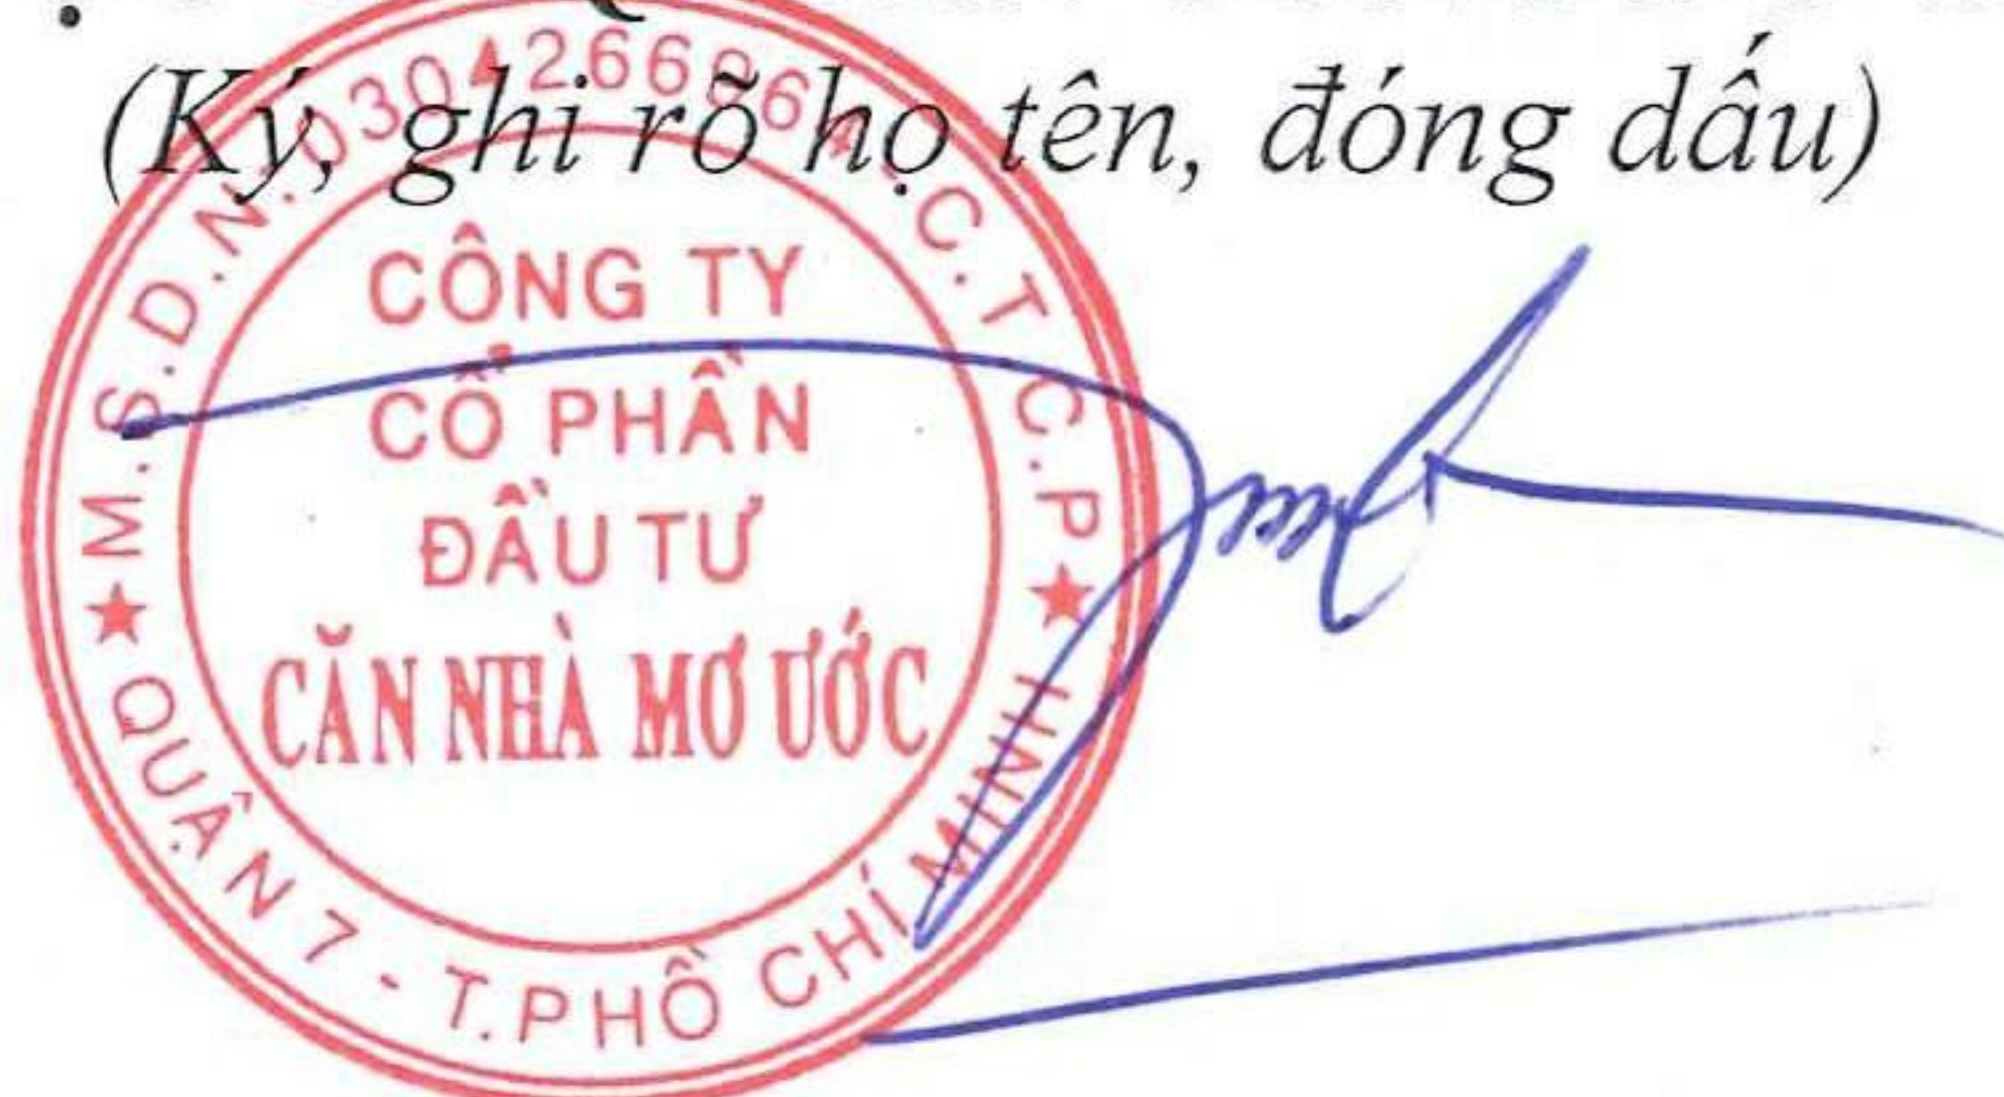 (Ký, ghi rõ họ tên, đóng dấu)
M.S.D.N: C.T.C.P
CÔNG TY
CỔ PHẦN
ĐẦU TƯ
CĂN NHÀ MƠ ƯỚC
QUẬN 7 - T.PHỒ CHÍ MINH